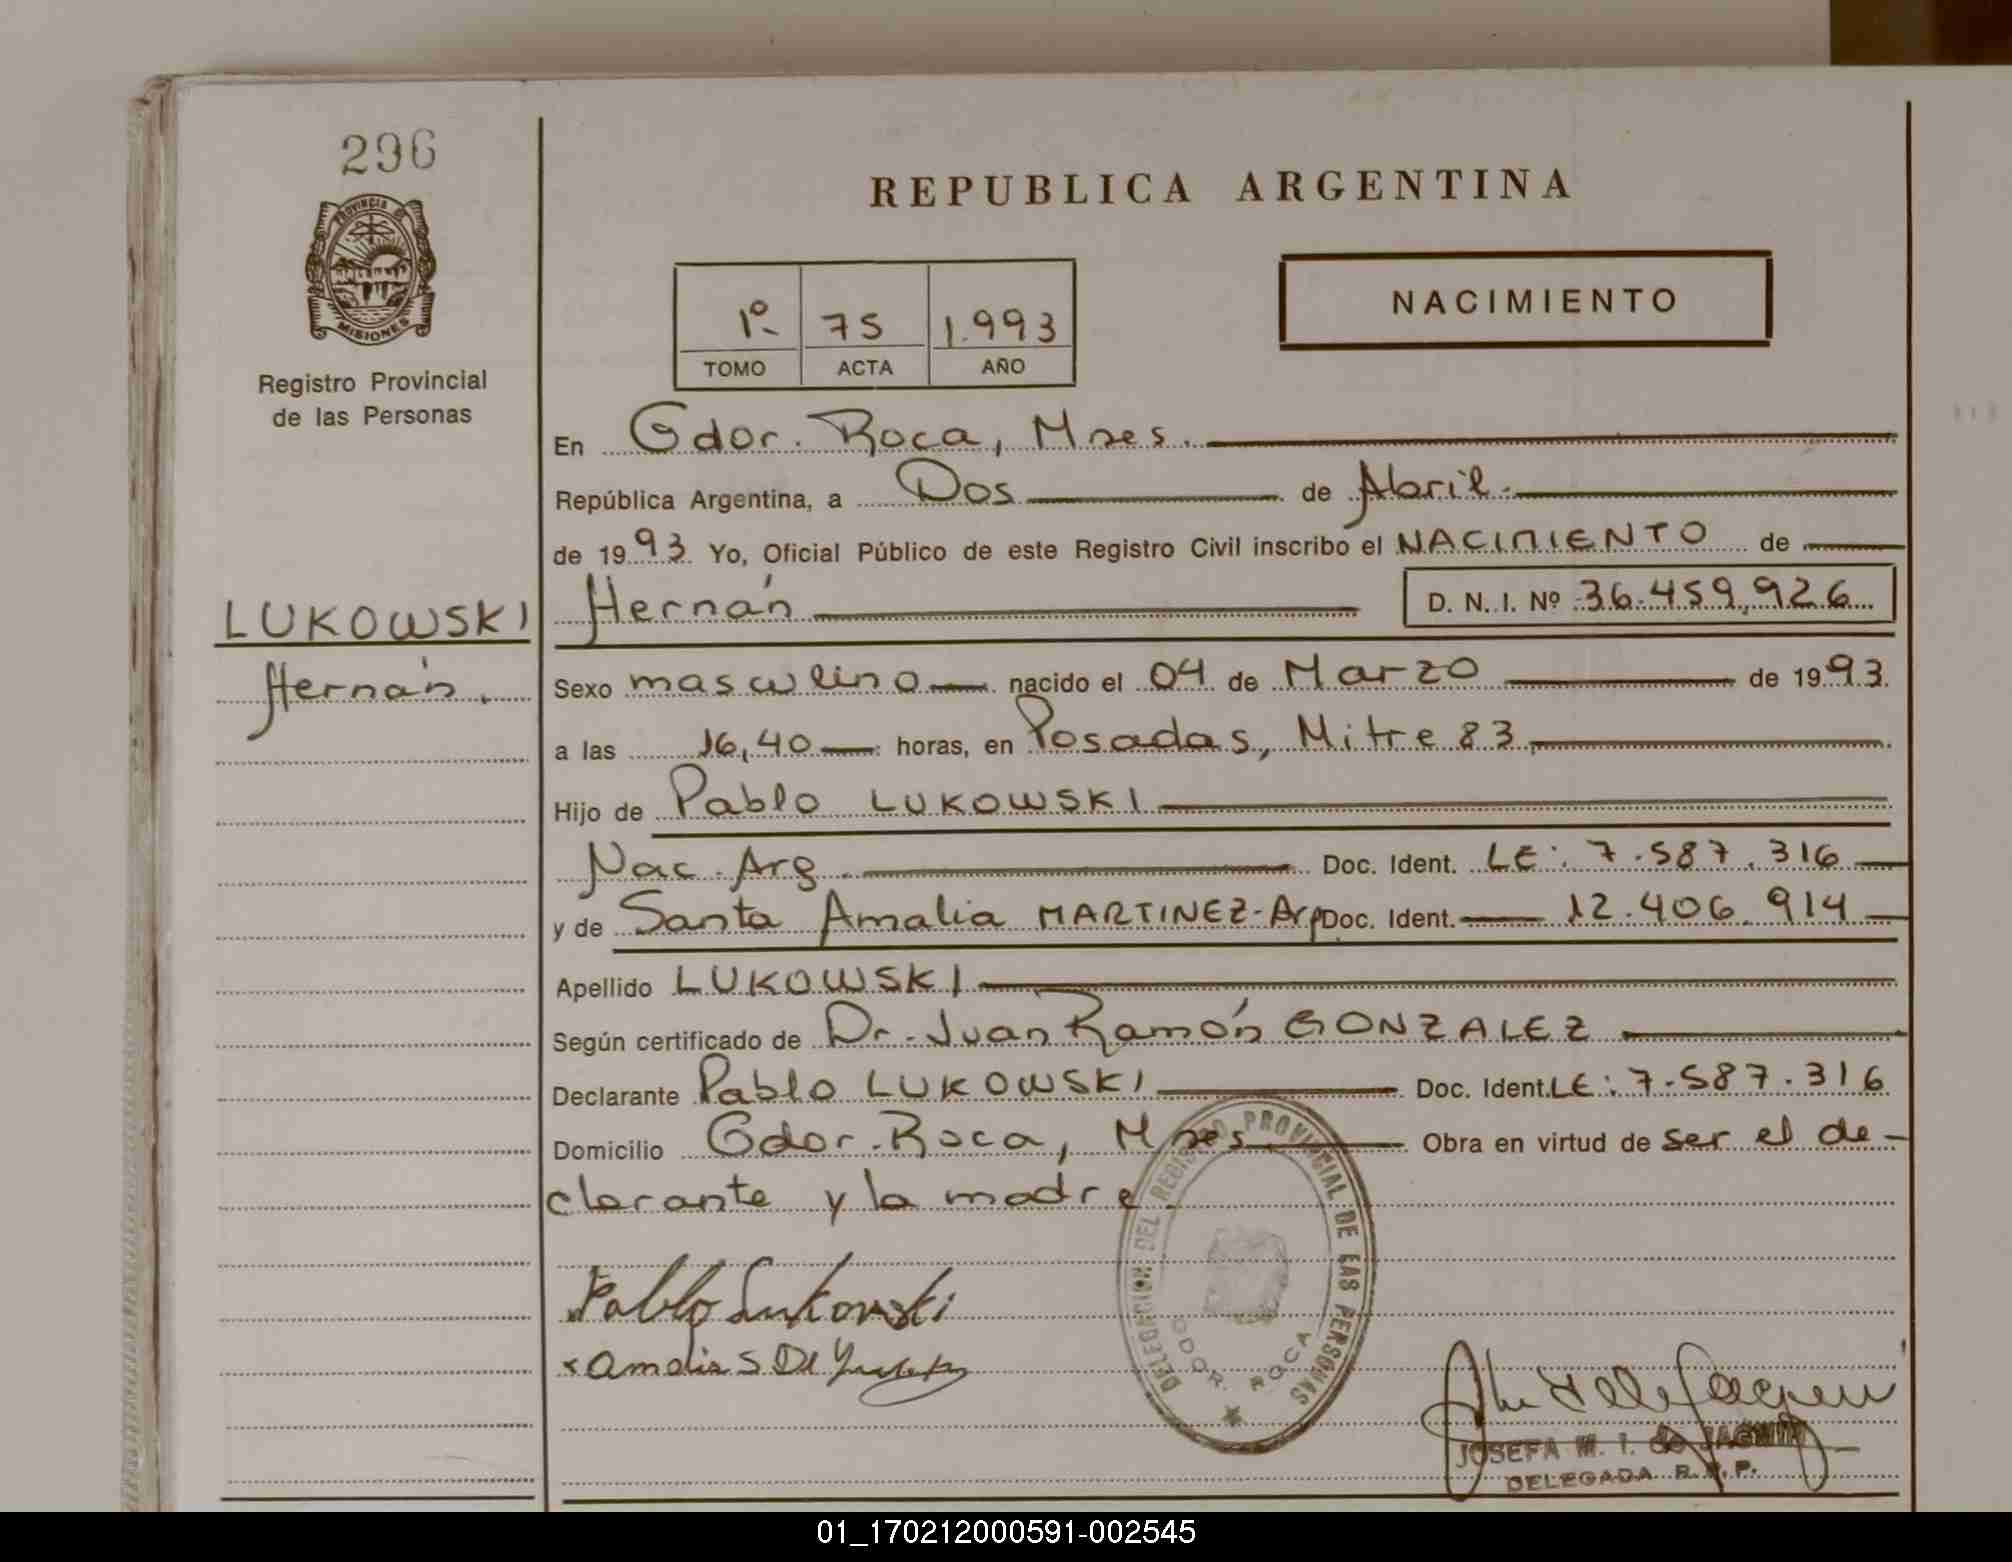 296
PROVINCIA DE
MISIONES
Registro Provincial
de las Personas
LUKOWSKI
Hernán.
REPUBLICA ARGENTINA
1º 75 1.993
TOMO ACTA AÑO
NACIMIENTO
En Gdor. Roca, Mnes.
República Argentina, a Dos de Abril
de 1993 Yo, Oficial Público de este Registro Civil inscribo el NACIMIENTO de
Hernán D. N. I. Nº 36.459.926
Sexo masculino nacido el 04 de Marzo de 1993.
a las 16,40 horas, en Posadas, Mitre 83
Hijo de Pablo LUKOWSKI
Nac. Arg. Doc. Ident. LE: 7.587.316
y de Santa Amalia MARTINEZ-Arg Doc. Ident. 12.406.914
Apellido LUKOWSKI
Según certificado de Dr. Juan Ramón GONZALEZ
Declarante Pablo LUKOWSKI Doc. Ident. LE: 7.587.316
Domicilio Gdor. Roca, Mnes. Obra en virtud de ser el de-
clarante y la madre.
DELEGACION DEL REGISTRO PROVINCIAL DE LAS PERSONAS
GDOR. ROCA
Pablo Lukowski
Amalia S De
JOSEFA M. I. de
DELEGADA R. P. P.
01_170212000591-002545